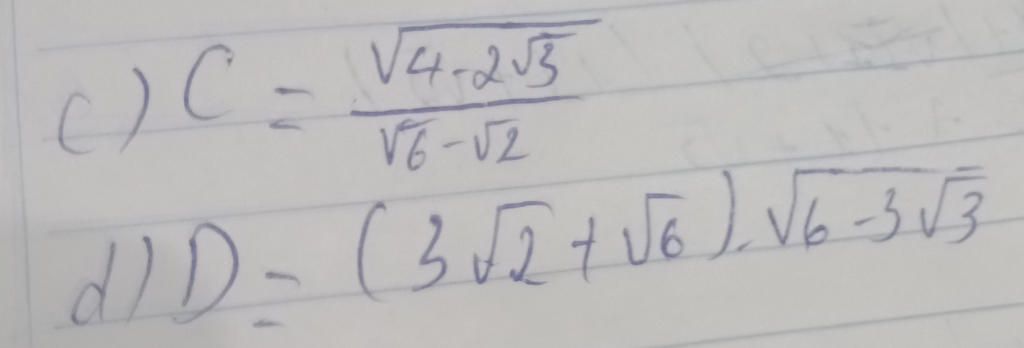 c) C = \frac{\sqrt{4-2\sqrt{3}}}{\sqrt{6}-\sqrt{2}}
d) D = (3\sqrt{2}+\sqrt{6}).\sqrt{6-3\sqrt{3}}